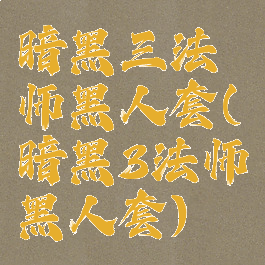 暗黑三法
师黑人套(
暗黑3法师
黑人套)